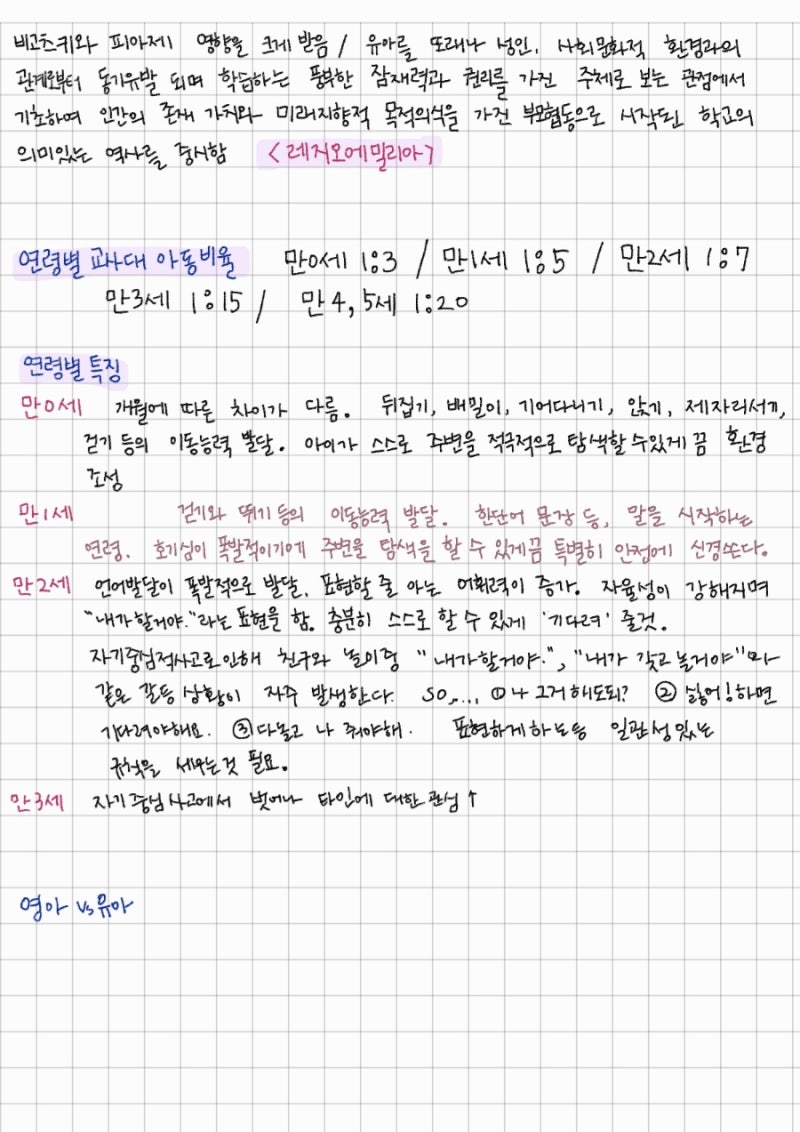 비고츠키와 피아제의 영향을 크게 받음 / 유아를 또래나 성인, 사회문화적 환경과의
관계로부터 동기유발 되며 학습하는 풍부한 잠재력과 권리를 가진 주체로 보는 관점에서
기초하여 인간의 존재 가치와 미래지향적 목적의식을 가진 부모협동으로 시작된 학교의
의미있는 역사를 중시함 <레지오에밀리아>
연령별 교사대 아동비율 만0세 1:3 / 만1세 1:5 / 만2세 1:7
만3세 1:15 / 만4,5세 1:20
연령별 특징
만0세 개월에 따른 차이가 다름. 뒤집기, 배밀이, 기어다니기, 앉기, 제자리서기,
걷기 등의 이동능력 발달. 아이가 스스로 주변을 적극적으로 탐색할 수있게 끔 환경
조성
만1세 걷기와 뛰기 등의 이동능력 발달. 한단어 문장 등, 말을 시작하는
연령. 호기심이 폭발적이기에 주변을 탐색을 할 수 있게끔 특별히 안전에 신경쓴다.
만2세 언어발달이 폭발적으로 발달, 표현할 줄 아는 어휘력이 증가. 자율성이 강해지며
"내가할거야."라는 표현을 함. 충분히 스스로 할 수 있게 '기다려' 줄것.
자기중심적사고로인해 친구와 놀이중 "내가할거야.", "내가 갖고놀거야"와
같은 갈등 상황이 자주 발생한다. so,... ①나 그거 해도되? ② 싫어!하면
기다려야해요. ③다놀고 나 줘야해. 표현하게하는등 일관성있는
규칙을 세우는것 필요.
만3세 자기중심사고에서 벗어나 타인에 대한관심↑
영아 vs유아